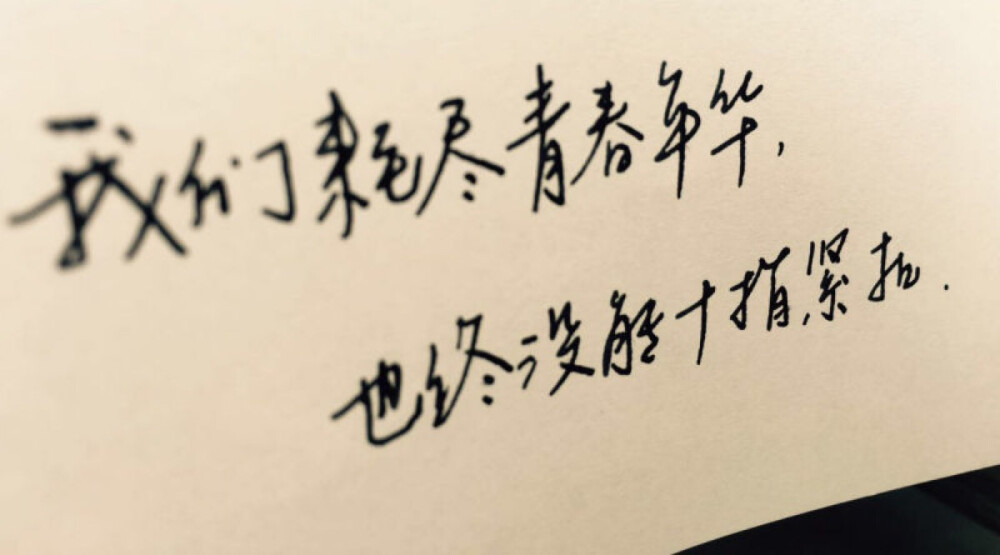 我们耗尽青春年华,
也终没能十指紧扣.